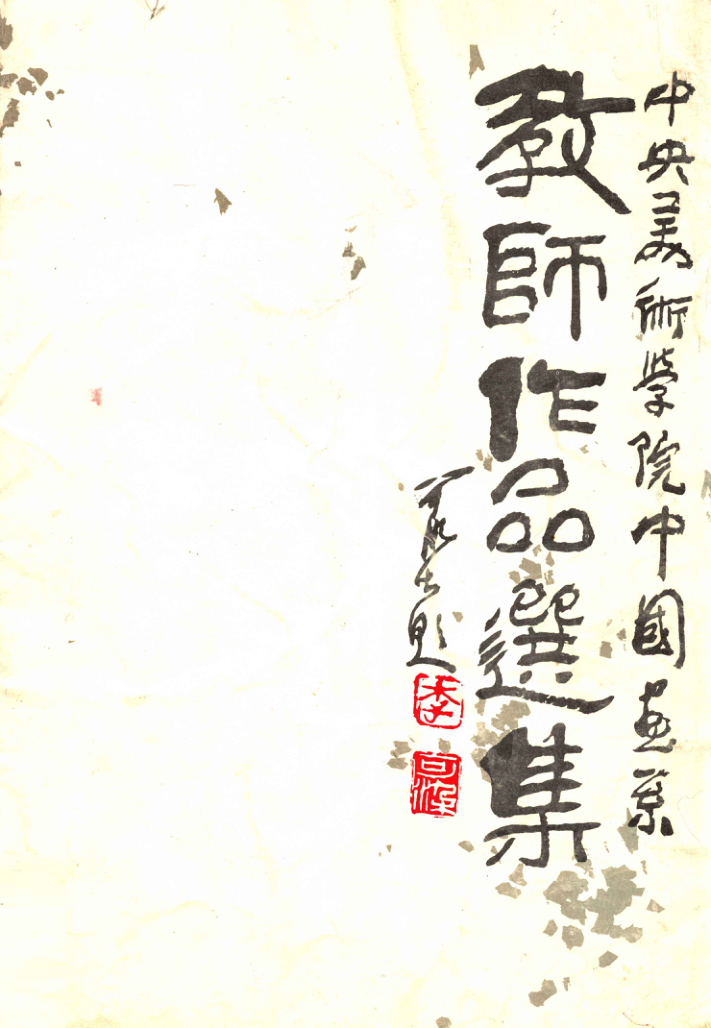 中央美術學院中國畫系
教師作品選集
可染題
李
可染